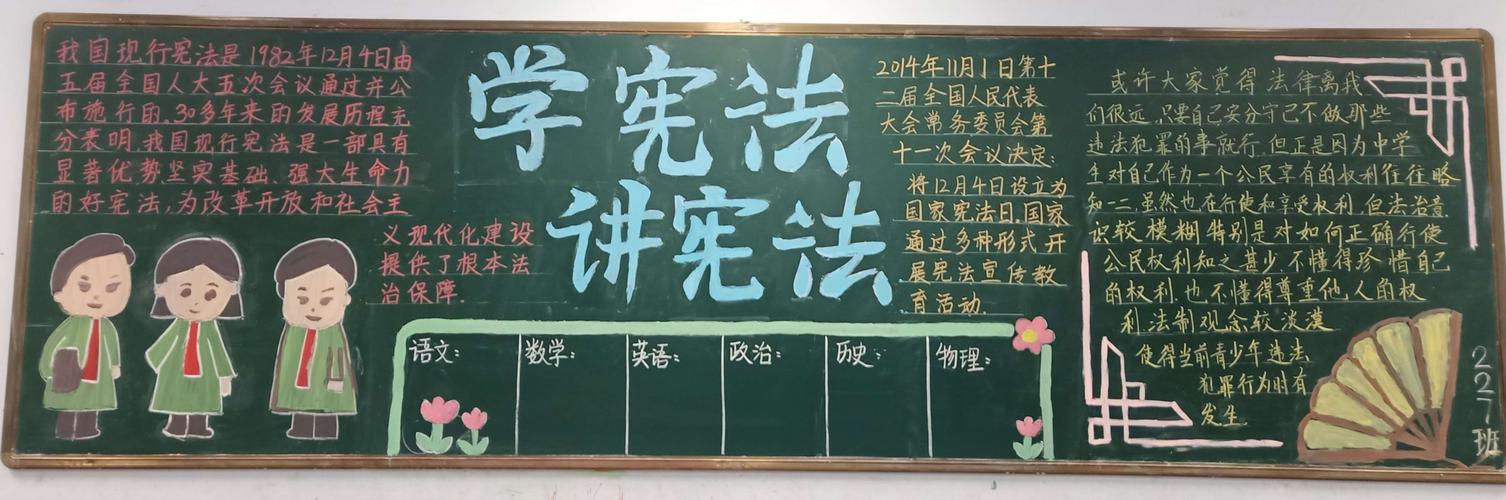 我国现行宪法是1982年12月4日由
五届全国人大五次会议通过并公
布施行的.30多年来的发展历程充
分表明,我国现行宪法是一部具有
显著优势坚实基础、强大生命力
的好宪法,为改革开放和社会主
义现代化建设
提供了根本法
治保障.
学宪法
讲宪法
2014年11月1日第十
二届全国人民代表
大会常务委员会第
十一次会议决定:
将12月4日设立为
国家宪法日.国家
通过多种形式开
展宪法宣传教
育活动.
语文: 数学: 英语: 政治: 历史: 物理:
或许大家觉得法律离我
们很远.只要自己安分守己不做那些
违法犯罪的事就行.但正是因为中学
生对自己作为一个公民享有的权利往往略
知一二.虽然也在行使和享受权利.但法治意
识较模糊特别是对如何正确行使
公民权利知之甚少.不懂得珍惜自己
的权利.也不懂得尊重他人的权
利法制观念较淡漠
使得当前青少年违法
犯罪行为时有
发生.
227班